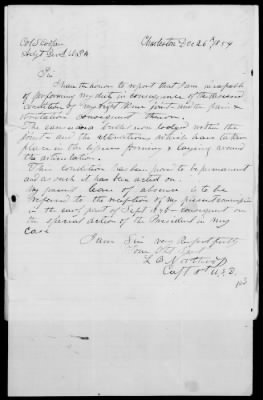 Col S. Cooper Charleston Dec 26th 1854
Adjt Genl U.S.A
Sir
I have the honor to report that I am incapable
of performing my duty in consequence of the diseased
condition of my right knee joint and the pain &
consequent thereon.
The cause is a bullet now lodged within the
joint and the alterations which have taken
place in the tissues forming & laying around
the articulation.
This condition has been proven to be permanent
and as such it has been acted on.
My present leave of absence is to be
referred to the reception of my
in the early part of Sept consequent on
the special action of the President in my
case
I am Sir very respectfully
Your Obt Servt
L B Northrop
Capt 1st U.S.D.